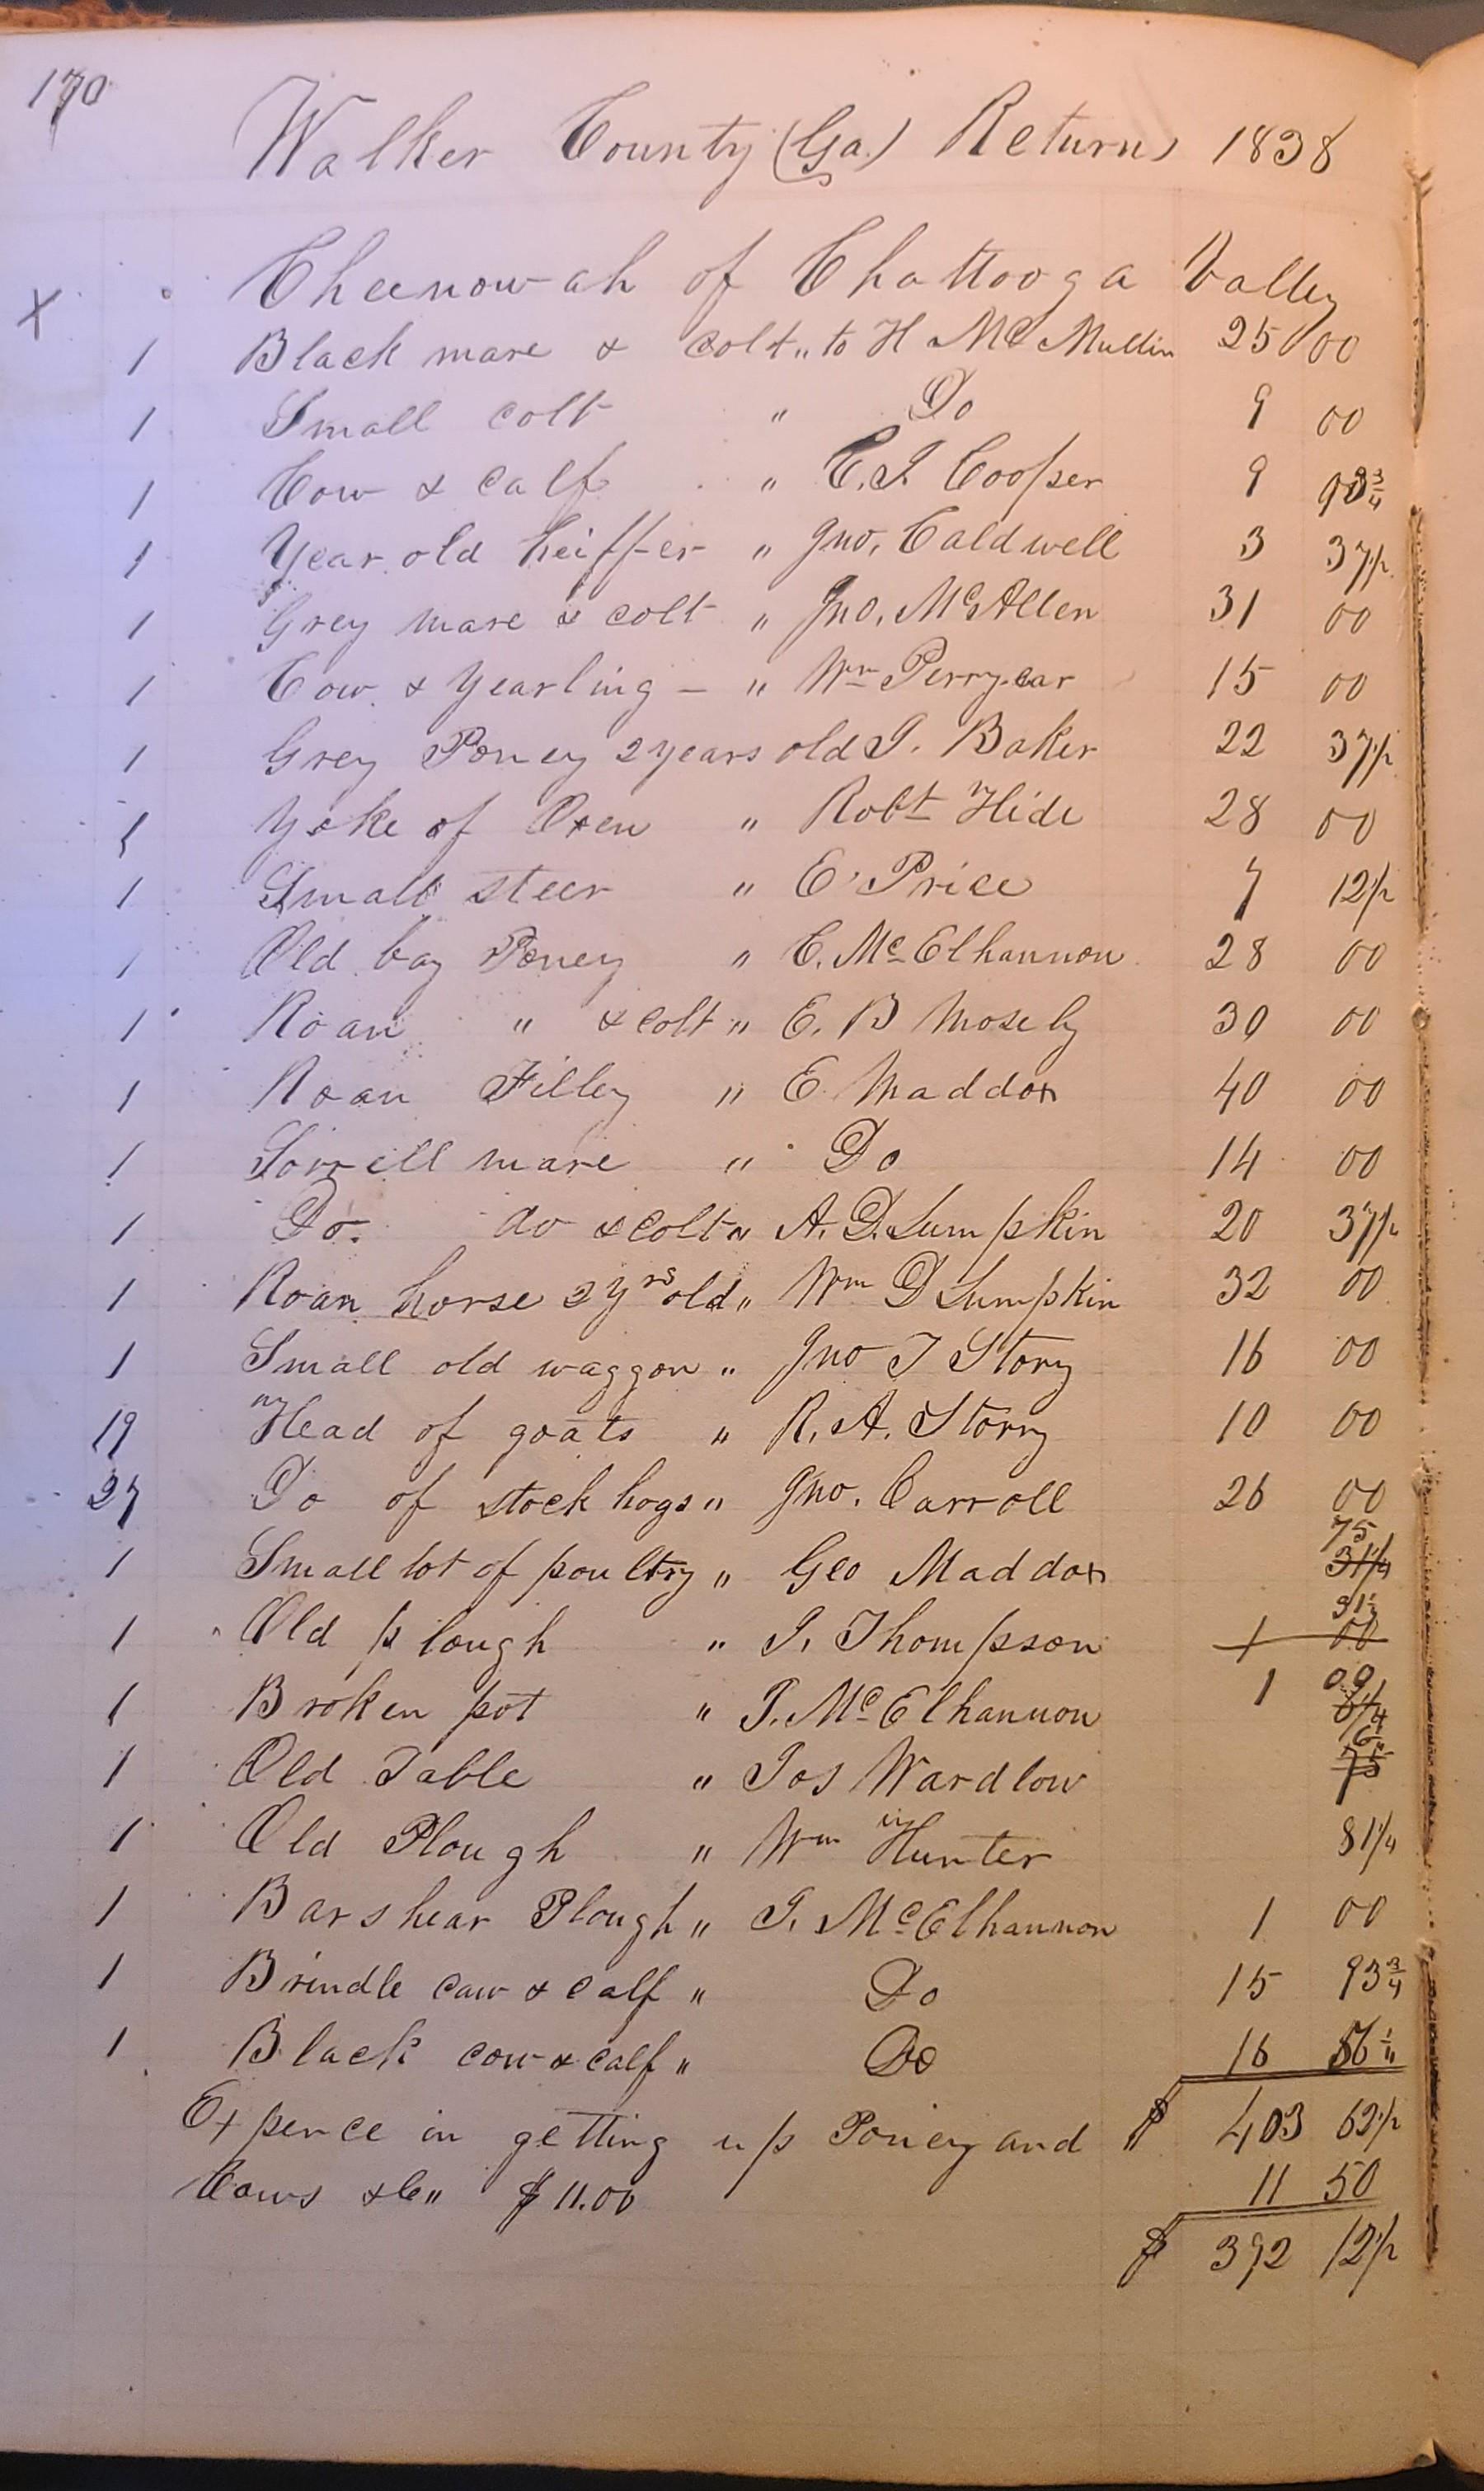 170
Walker County (Ga.) Returns 1838
X Cheenowah of Chattooga Valley
1 Black mare & colt " to H McMullin 25 00
1 Small colt " Do 9 00
1 Cow & calf " C. J. Cooper 9 93¾
1 Year old heiffer " Jno. Caldwell 3 37½
1 Grey mare & colt " Jno. McAllen 31 00
1 Cow & Yearling – " Wm Perryear 15 00
1 Grey Poney 2 years old J. Baker 22 37½
1 Yoke of Oxen " Robt Hide 28 00
1 Small steer " E. Price 7 12½
1 Old bay Poney " C. McElhannon 28 00
1 Roan " & colt " E. B Mosely 30 00
1 Roan Filley " E Maddox 40 00
1 Sorrell mare " Do 14 00
1 Do. do & colt " A. D. Lumpkin 20 37½
1 Roan horse 2 yrs old " Wm D Lumpkin 32 00
1 Small old waggon " Jno T Story 16 00
19 Head of goats " R. A. Story 10 00
27 Do of stock hogs " Jno. Carroll 26 00
1 Small lot of poultry " Geo Maddox 75 31¼
1 Old plough " J. Thompson 1 00 31¼
1 Broken pot " J. McElhannon 1 00 6¼
1 Old Table " Jos Wardlow 6¼ 75
1 Old Plough " Wm Hunter 81¼
1 Barshear Plough " J. McElhannon 1 00
1 Brindle cow & calf " Do 15 93¾
1 Black cow & calf " Do 16 56¼
Expence in getting up Poney and $ 403 62½
Cows &c " $11.00 11 50
$ 392 12½